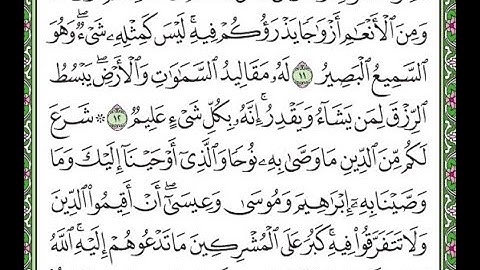 وَمِنَ ٱلْأَنْعَٰمِ أَزْوَٰجًا يَذْرَؤُكُمْ فِيهِ ۚ لَيْسَ كَمِثْلِهِۦ شَىْءٌ ۖ وَهُوَ
ٱلسَّمِيعُ ٱلْبَصِيرُ ١١ لَهُۥ مَقَالِيدُ ٱلسَّمَٰوَٰتِ وَٱلْأَرْضِ ۖ يَبْسُطُ
ٱلرِّزْقَ لِمَن يَشَآءُ وَيَقْدِرُ ۚ إِنَّهُۥ بِكُلِّ شَىْءٍ عَلِيمٌ ١٢ ۞ شَرَعَ
لَكُم مِّنَ ٱلدِّينِ مَا وَصَّىٰ بِهِۦ نُوحًا وَٱلَّذِىٓ أَوْحَيْنَآ إِلَيْكَ وَمَا
وَصَّيْنَا بِهِۦٓ إِبْرَٰهِيمَ وَمُوسَىٰ وَعِيسَىٰٓ ۖ أَنْ أَقِيمُوا۟ ٱلدِّينَ
وَلَا تَتَفَرَّقُوا۟ فِيهِ ۚ كَبُرَ عَلَى ٱلْمُشْرِكِينَ مَا تَدْعُوهُمْ إِلَيْهِ ۚ ٱللَّهُ